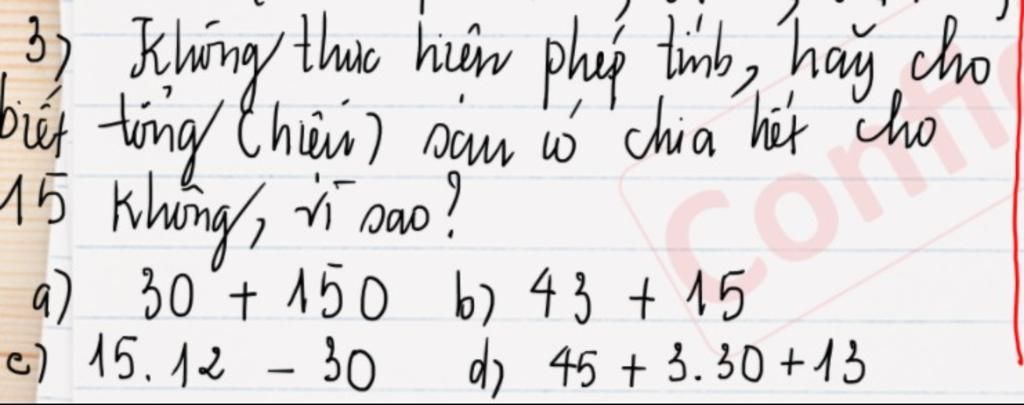 3) Không thưc hiên phép tính, hãy cho
biết tổng (hiêu) sau có chia hết cho
15 không, vì sao?
a) 30 + 150 b) 43 + 15
c) 15. 12 - 30 d) 45 + 3.30 + 13
Confi